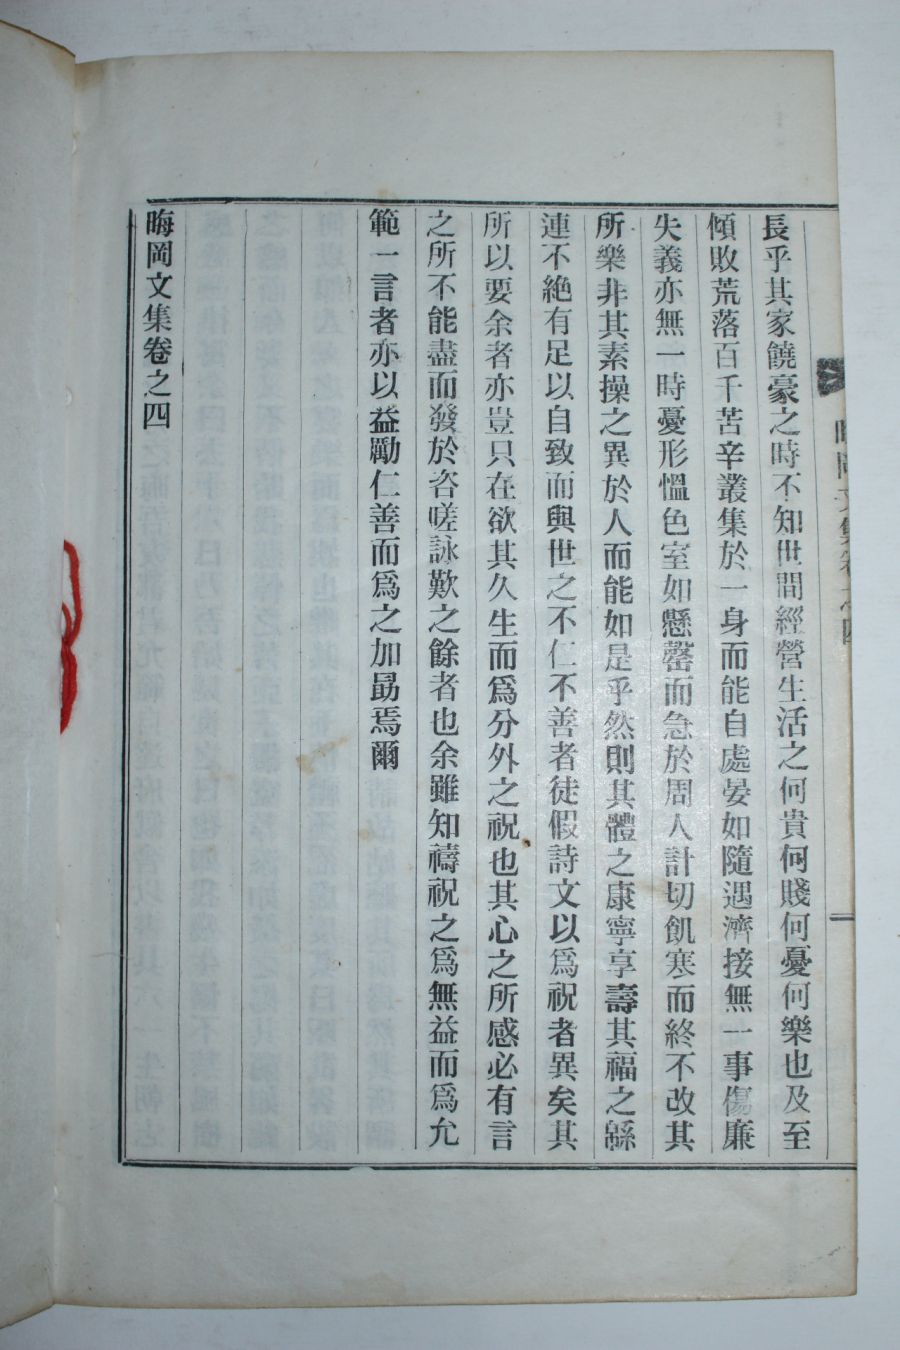 晦岡文集卷之四
長乎其家饒豪之時不知世間經營生活之何貴何賤何憂何樂也及至
傾敗荒落百千苦辛叢集於一身而能自處晏如隨遇濟接無一事傷廉
失義亦無一時憂形慍色室如懸罄而急於周人計切飢寒而終不改其
所樂非其素操之異於人而能如是乎然則其體之康寧享壽其福之緜
連不絶有足以自致而與世之不仁不善者徒假詩文以爲祝者異矣其
所以要余者亦豈只在欲其久生而爲分外之祝也其心之所感必有言
之所不能盡而發於咨嗟詠歎之餘者也余雖知禱祝之爲無益而爲允
範一言者亦以益勵仁善而爲之加勗焉爾
晦岡文集卷之四